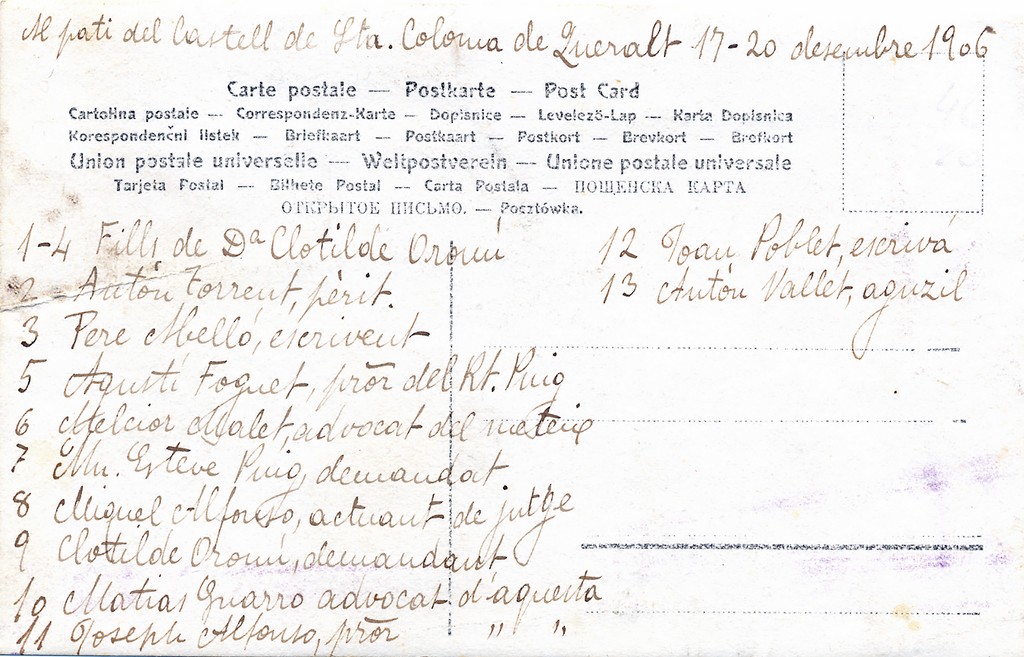 Al pati del Castell de Sta. Coloma de Queralt 17-20 desembre 1906
Carte postale — Postkarte — Post Card
Cartolina postale — Correspondenz-Karte — Dopisnice — Levelező-Lap — Karta Dopisnica
Korespondenční listek — Briefkaart — Postkaart — Postkort — Brevkort — Brefkort
Union postale universelle — Weltpostverein — Unione postale universale
Tarjeta Postal — Bilhete Postal — Carta Postala — ПОЩЕНСКА КАРТА
ОТКРЫТОЕ ПИСЬМО. — Pocztówka.
1-4 Fills de Dª Clotilde Oromí
2 Antón Torrent, pèrit.
3 Pere Melló, escrivent
5 Agustí Foguet, pròr del Rt. Puig
6 Melcior Malet, advocat del meteix
7 Mn. Esteve Puig, demandat
8 Miquel Alfonso, actuant de jutge
9 Clotilde Oromí, demandant
10 Matias Guarro advocat d'aquesta
11 Joseph Alfonso, pròr " "
12 Joan Poblet, escrivá
13 Antón Vallet, aguzil